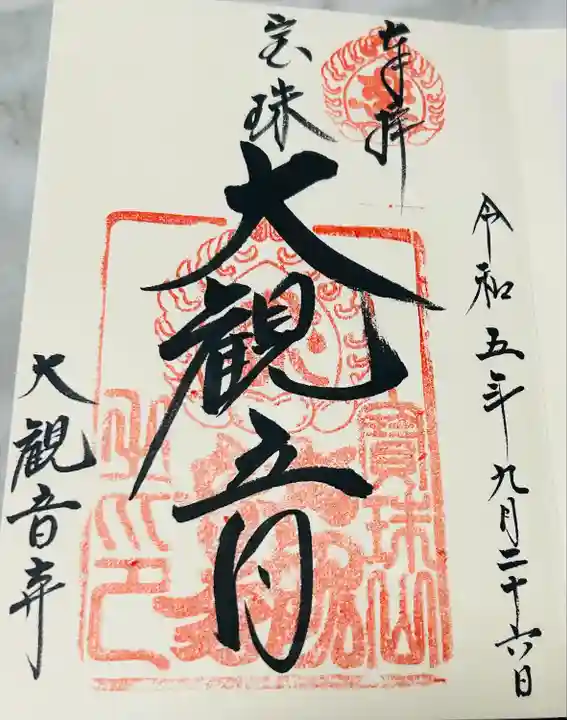 令和五年九月二十六日
奉拝
宝珠
大観音
大観音寺
寳珠山